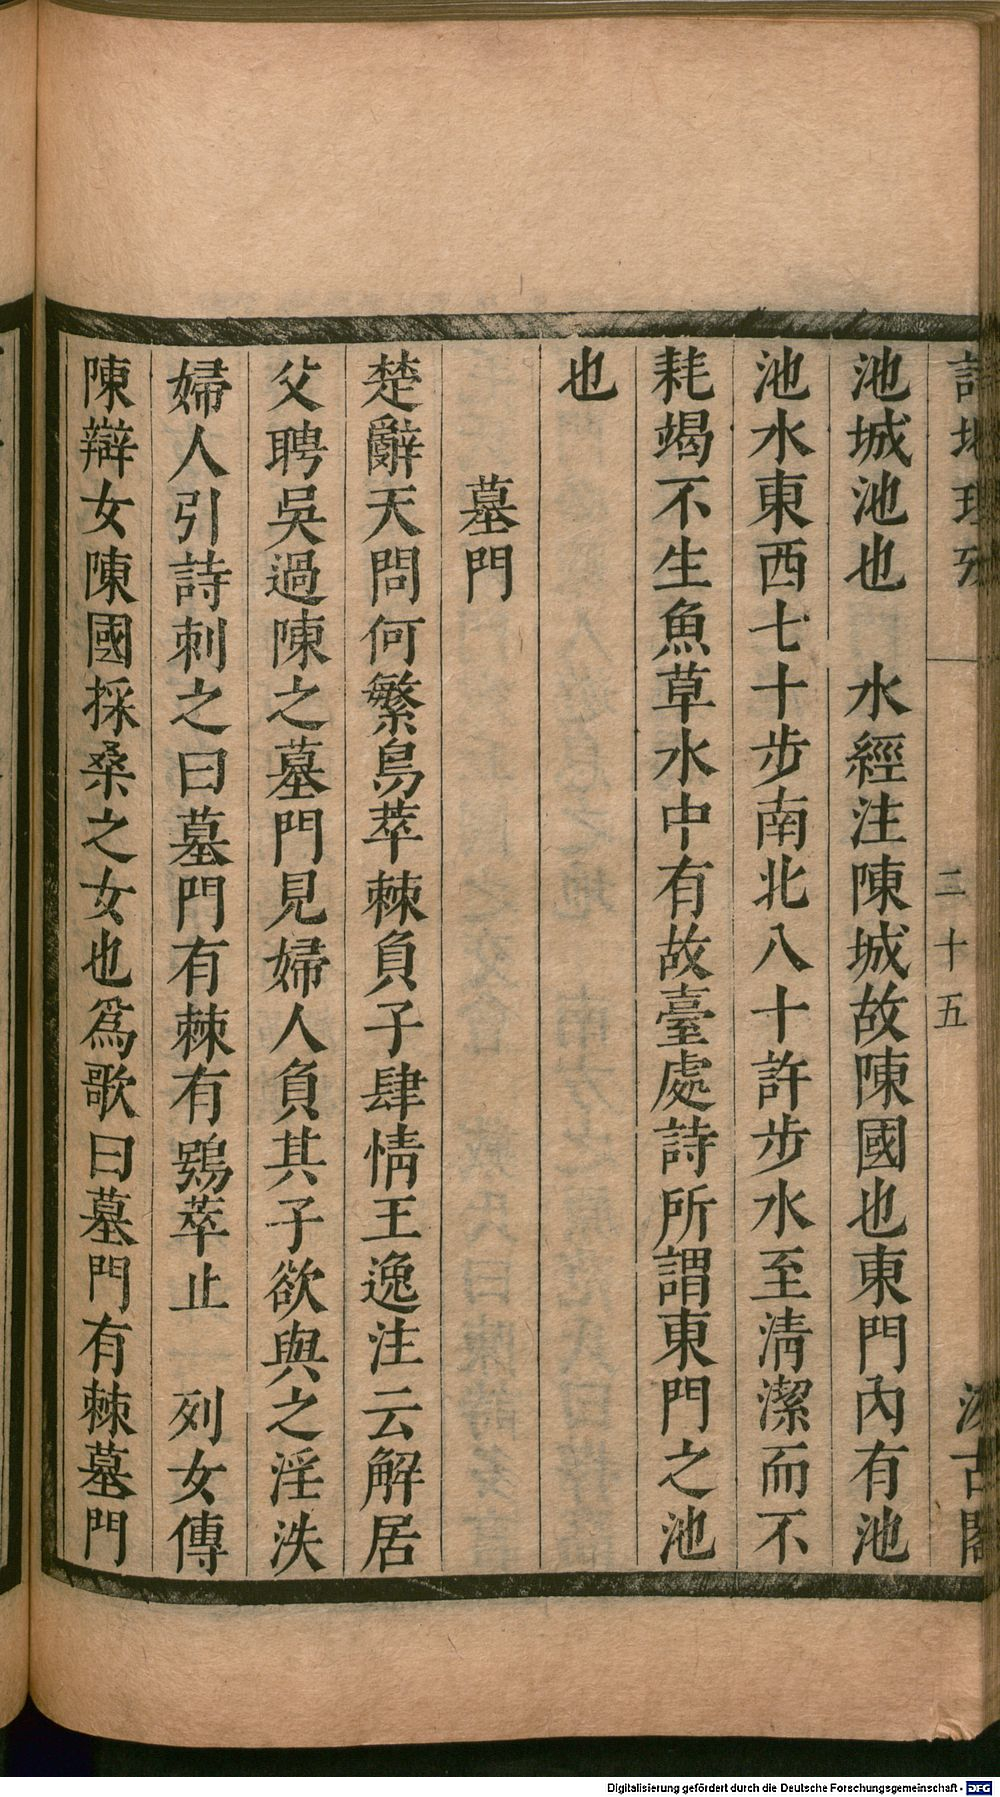 詩地理攷
三十五
汲古閣
池城池也　水經注陳城故陳國也東門內有池
池水東西七十步南北八十許步水至清潔而不
耗竭不生魚草水中有故臺處詩所謂東門之池
也
墓門
楚辭天問何繁鳥萃棘負子肆情王逸注云解居
父聘吳過陳之墓門見婦人負其子欲與之淫泆
婦人引詩刺之曰墓門有棘有鴞萃止　列女傳
陳辯女陳國採桑之女也爲歌曰墓門有棘墓門
Digitalisierung gefördert durch die Deutsche Forschungsgemeinschaft - DFG